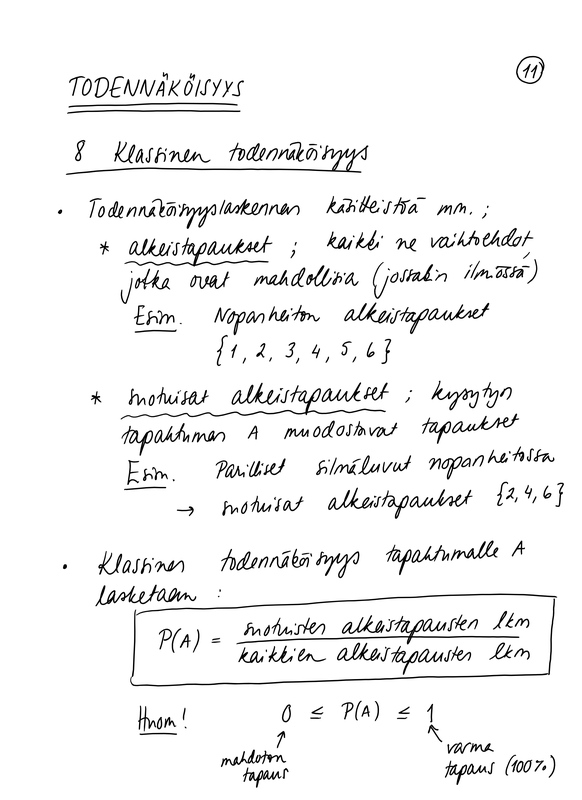 11
TODENNÄKÖISYYS
8 Klassinen todennäköisyys
• Todennäköisyyslaskennan käsitteistöä mm. ;
* alkeistapaukset ; kaikki ne vaihtoehdot,
jotka ovat mahdollisia (jossakin ilmiössä)
Esim. Nopanheiton alkeistapaukset
{1, 2, 3, 4, 5, 6}
* suotuisat alkeistapaukset ; kysytyn
tapahtuman A muodostavat tapaukset
Esim. Parilliset silmäluvut nopanheitossa
→ suotuisat alkeistapaukset {2, 4, 6}
• Klassinen todennäköisyys tapahtumalle A
lasketaan :
P(A) = suotuisten alkeistapausten lkm
kaikkien alkeistapausten lkm
Huom! 0 ≤ P(A) ≤ 1
mahdoton tapaus
varma tapaus (100%)